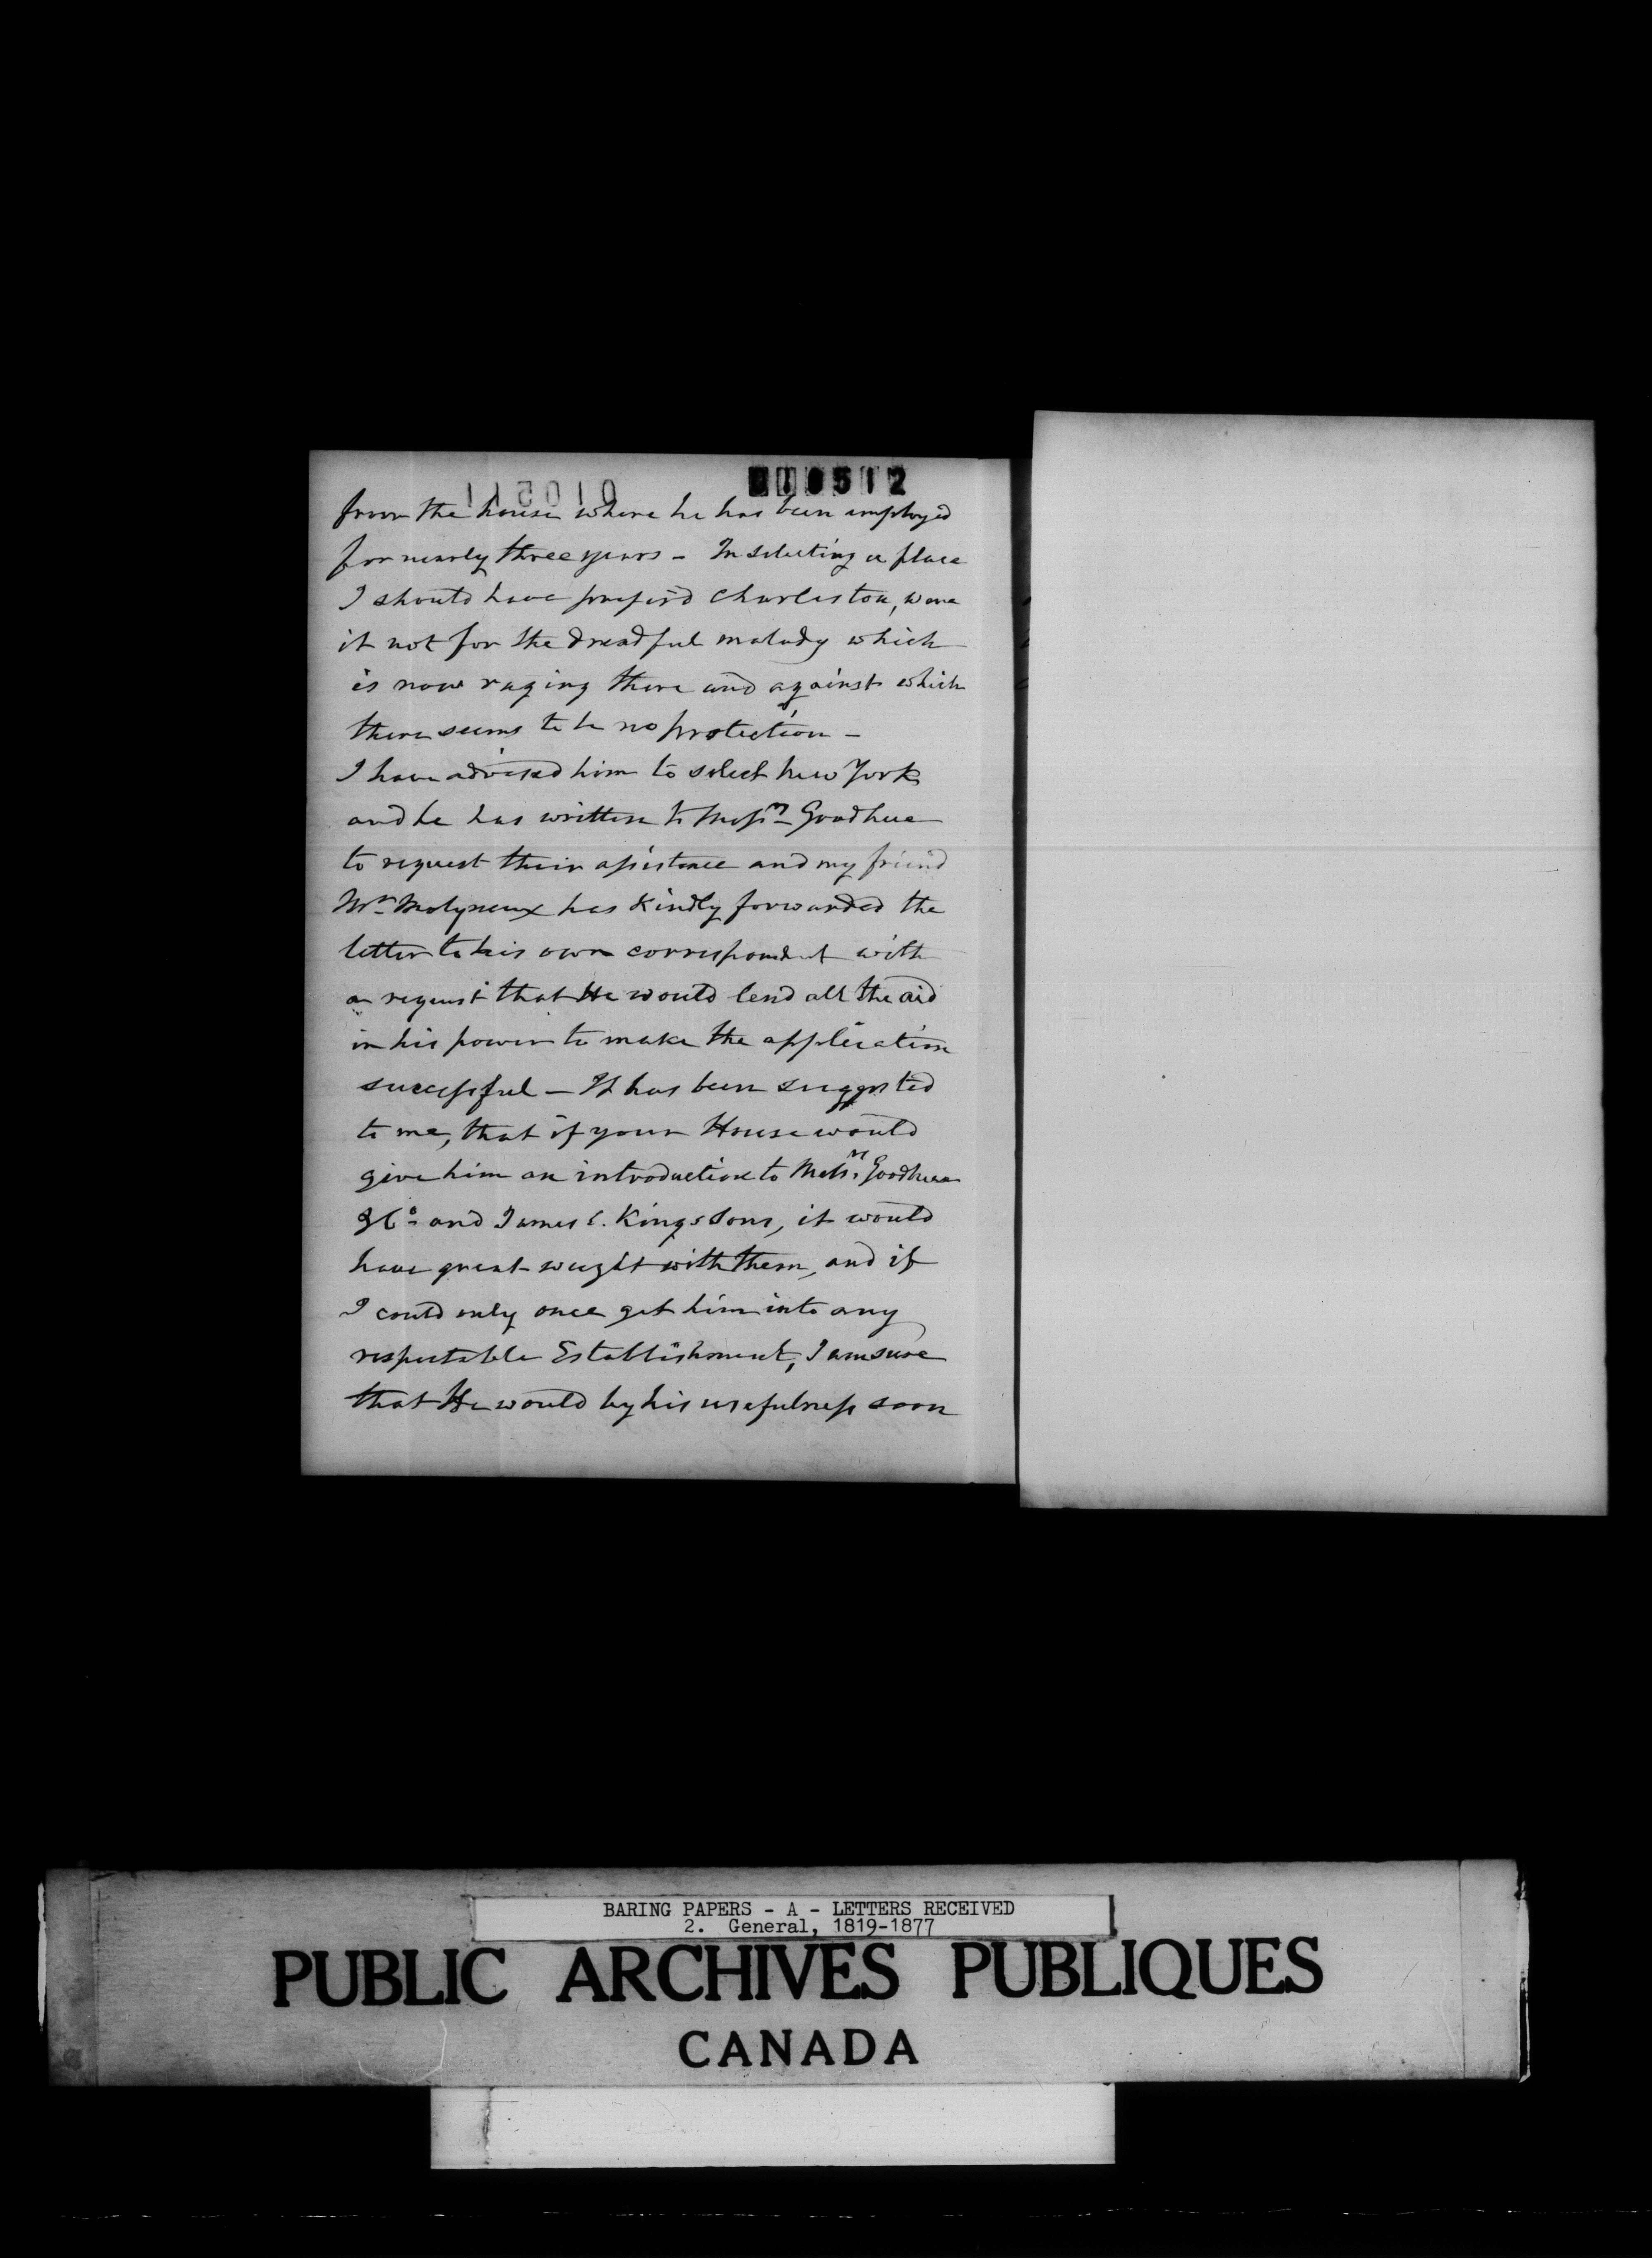 010512
010511
from the house where he has been employed
for nearly three years - In selecting a place
I should have prefer'd Charleston, were
it not for the dreadful malady which
is now raging there and against which
there seems to be no protection -
I have advised him to select New York
and he has written to Messrs Goodhue
to request their assistance and my friend
Mr. Molyneux has kindly forwarded the
letter to his own correspondent with
a request that He would lend all the aid
in his power to make the application
successful - It has been suggested
to me, that if your House would
give him an introduction to Messrs. Goodhue
& Co. and James G. King & Sons, it would
have great weight with them, and if
I could only once get him into any
respectable Establishment, I am sure
that He would by his usefulness soon
BARING PAPERS - A - LETTERS RECEIVED
2. General, 1819-1877
PUBLIC ARCHIVES PUBLIQUES
CANADA